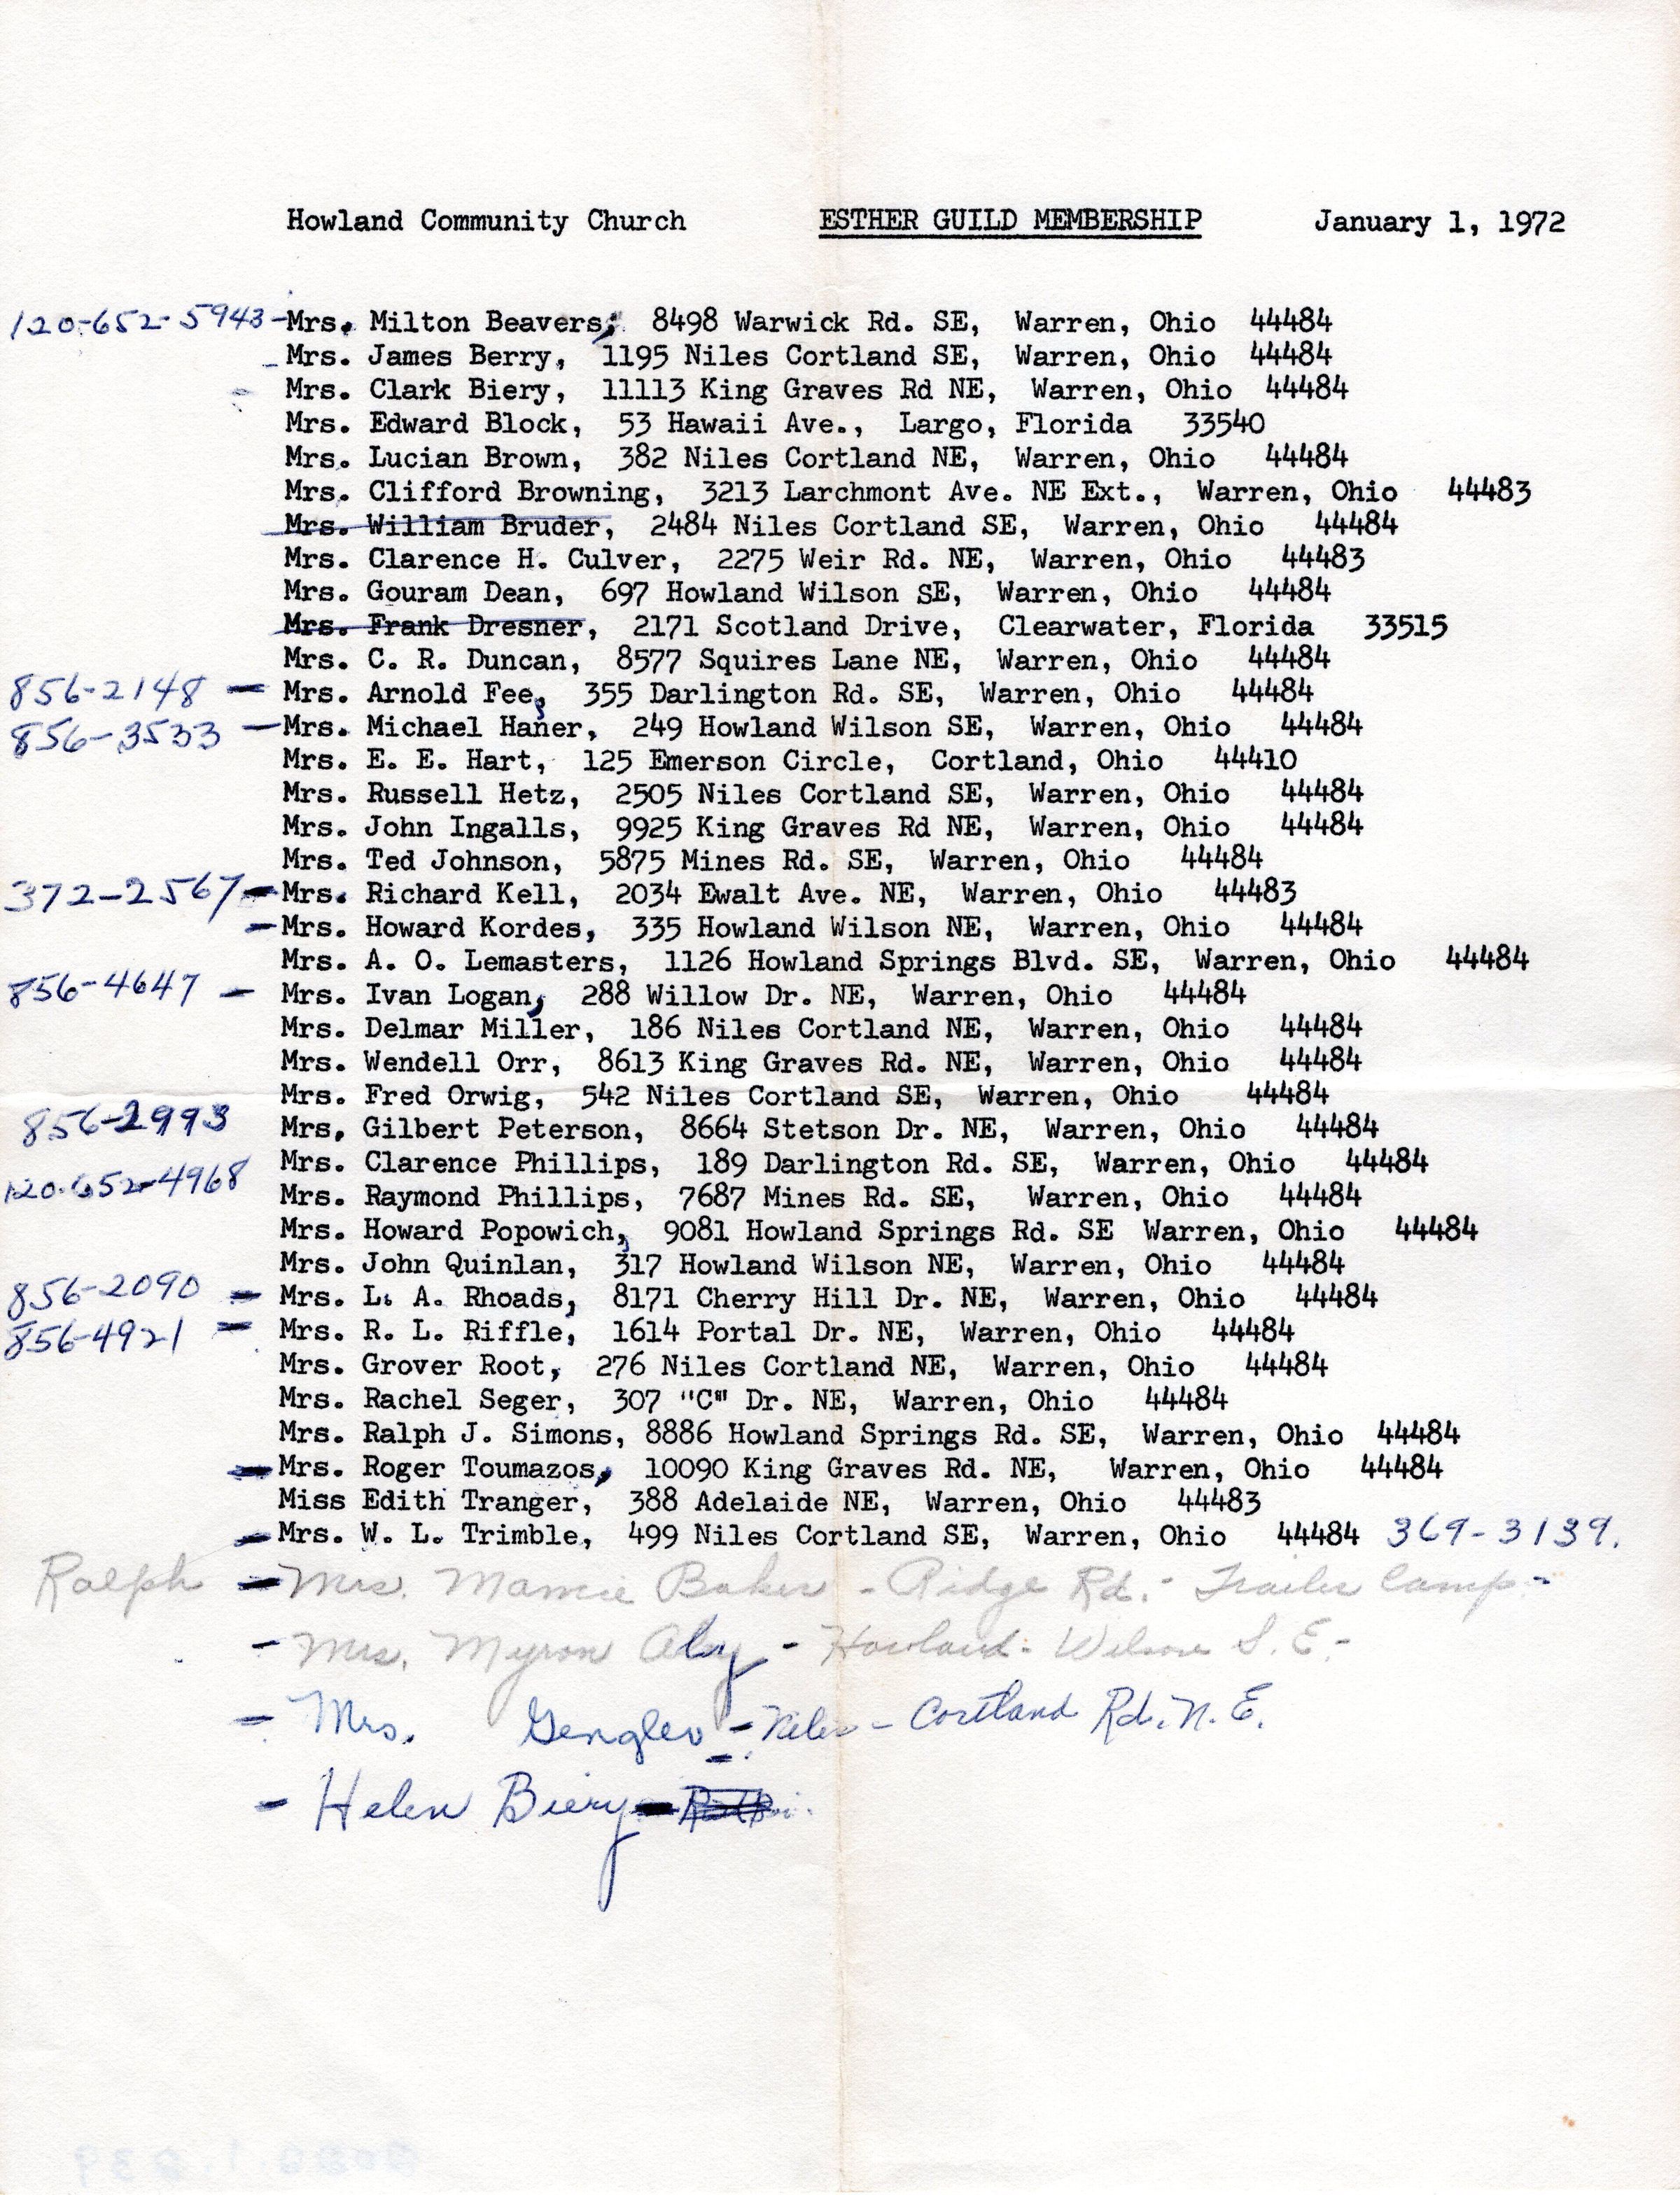 Howland Community Church ESTHER GUILD MEMBERSHIP January 1, 1972
120-652-5943-Mrs. Milton Beavers, 8498 Warwick Rd. SE, Warren, Ohio 44484
- Mrs. James Berry, 1195 Niles Cortland SE, Warren, Ohio 44484
- Mrs. Clark Biery, 11113 King Graves Rd NE, Warren, Ohio 44484
Mrs. Edward Block, 53 Hawaii Ave., Largo, Florida 33540
Mrs. Lucian Brown, 382 Niles Cortland NE, Warren, Ohio 44484
Mrs. Clifford Browning, 3213 Larchmont Ave. NE Ext., Warren, Ohio 44483
Mrs. William Bruder, 2484 Niles Cortland SE, Warren, Ohio 44484
Mrs. Clarence H. Culver, 2275 Weir Rd. NE, Warren, Ohio 44483
Mrs. Gouram Dean, 697 Howland Wilson SE, Warren, Ohio 44484
Mrs. Frank Dresner, 2171 Scotland Drive, Clearwater, Florida 33515
Mrs. C. R. Duncan, 8577 Squires Lane NE, Warren, Ohio 44484
856-2148 - Mrs. Arnold Fee, 355 Darlington Rd. SE, Warren, Ohio 44484
856-3533 - Mrs. Michael Haner, 249 Howland Wilson SE, Warren, Ohio 44484
Mrs. E. E. Hart, 125 Emerson Circle, Cortland, Ohio 44410
Mrs. Russell Hetz, 2505 Niles Cortland SE, Warren, Ohio 44484
Mrs. John Ingalls, 9925 King Graves Rd NE, Warren, Ohio 44484
Mrs. Ted Johnson, 5875 Mines Rd. SE, Warren, Ohio 44484
372-2567 - Mrs. Richard Kell, 2034 Ewalt Ave. NE, Warren, Ohio 44483
- Mrs. Howard Kordes, 335 Howland Wilson NE, Warren, Ohio 44484
Mrs. A. O. Lemasters, 1126 Howland Springs Blvd. SE, Warren, Ohio 44484
856-4647 - Mrs. Ivan Logan, 288 Willow Dr. NE, Warren, Ohio 44484
Mrs. Delmar Miller, 186 Niles Cortland NE, Warren, Ohio 44484
Mrs. Wendell Orr, 8613 King Graves Rd. NE, Warren, Ohio 44484
Mrs. Fred Orwig, 542 Niles Cortland SE, Warren, Ohio 44484
856-2993 Mrs, Gilbert Peterson, 8664 Stetson Dr. NE, Warren, Ohio 44484
Mrs. Clarence Phillips, 189 Darlington Rd. SE, Warren, Ohio 44484
120-652-4968 Mrs. Raymond Phillips, 7687 Mines Rd. SE, Warren, Ohio 44484
Mrs. Howard Popowich, 9081 Howland Springs Rd. SE Warren, Ohio 44484
Mrs. John Quinlan, 317 Howland Wilson NE, Warren, Ohio 44484
856-2090 - Mrs. L. A. Rhoads, 8171 Cherry Hill Dr. NE, Warren, Ohio 44484
856-4921 - Mrs. R. L. Riffle, 1614 Portal Dr. NE, Warren, Ohio 44484
Mrs. Grover Root, 276 Niles Cortland NE, Warren, Ohio 44484
Mrs. Rachel Seger, 307 "C" Dr. NE, Warren, Ohio 44484
Mrs. Ralph J. Simons, 8886 Howland Springs Rd. SE, Warren, Ohio 44484
- Mrs. Roger Toumazos, 10090 King Graves Rd. NE, Warren, Ohio 44484
Miss Edith Tranger, 388 Adelaide NE, Warren, Ohio 44483
- Mrs. W. L. Trimble, 499 Niles Cortland SE, Warren, Ohio 44484 369-3139.
Ralph - Mrs. Mamie Baker - Ridge Rd. - Trailer Camp -
- Mrs. Myron Aly - Howland - Wilson S. E. -
- Mrs. Gengler - Niles - Cortland Rd. N. E.
- Helen Biery -